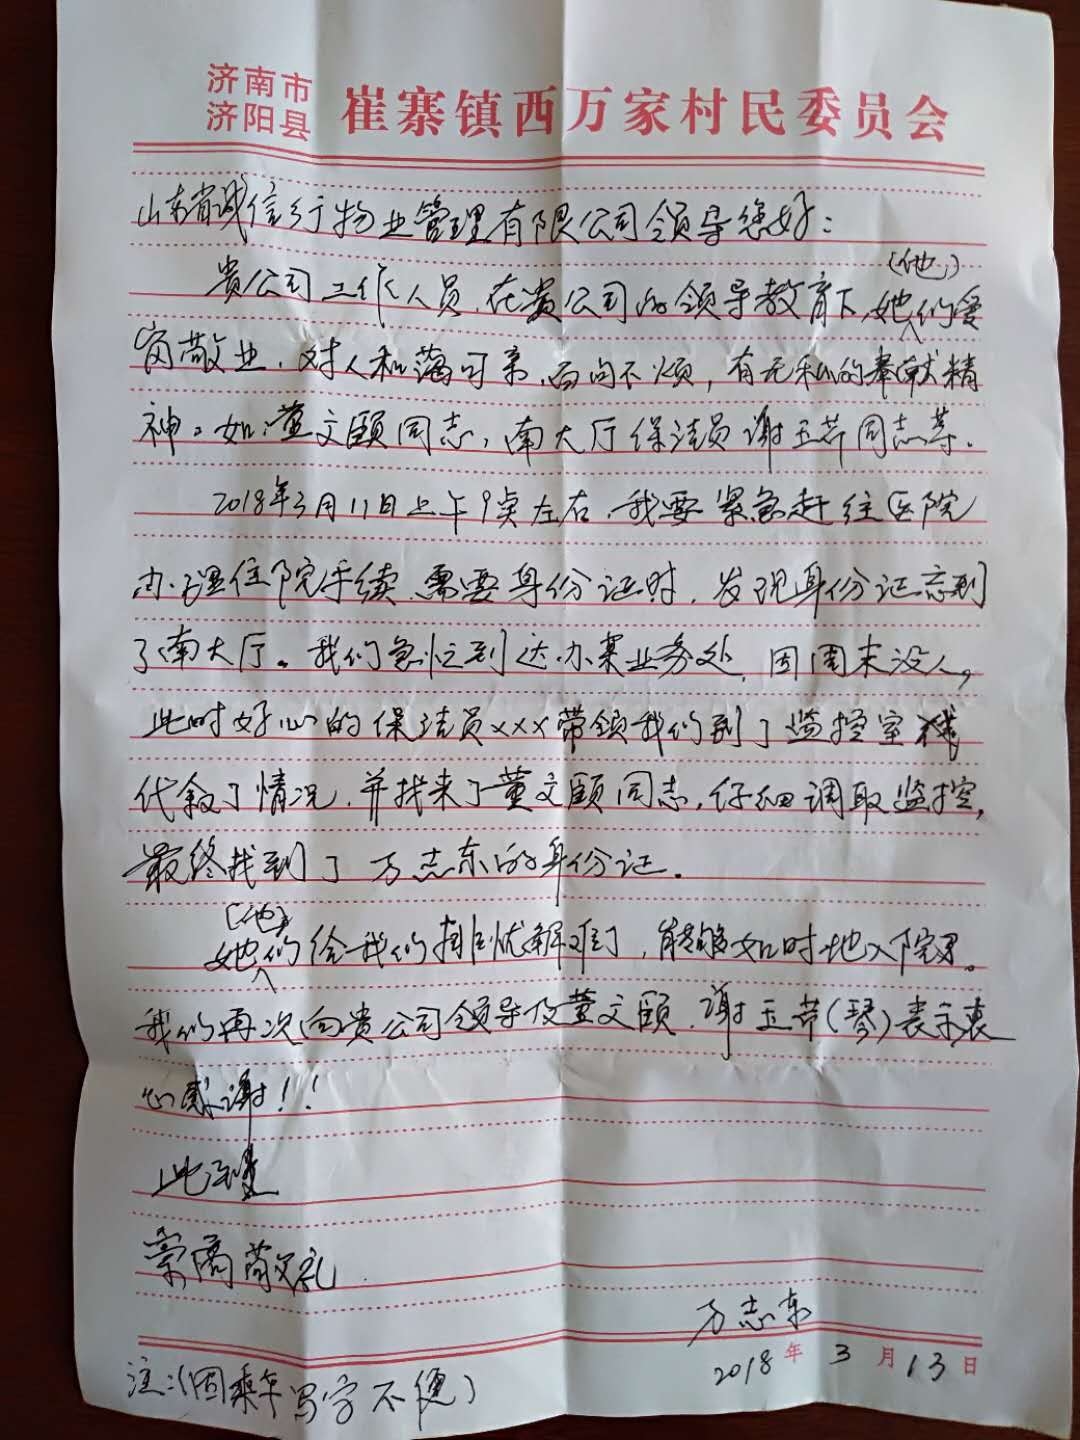 济南市
济阳县
崔寨镇西万家村民委员会
山东省诚信行物业管理有限公司领导您好：
贵公司工作人员,在贵公司的领导教育下,她(他)们爱
岗敬业,对人和蔼可亲,百问不烦,有无私的奉献精
神。如:董文颐同志,南大厅保洁员谢玉芹同志等.
2018年3月11日上午9点左右,我要紧急赶往医院
办理住院手续,需要身份证时,发现身份证忘到
了南大厅。我们急忙到达办案业务处,因周末没人,
此时好心的保洁员×××带领我们到了监控室
代叙了情况,并找来了董文颐同志,仔细调取监控,
最终找到了万志东的身份证.
她(他)们给我们排忧解难,能够如时地入院。
我们再次向贵公司领导及董文颐.谢玉芹(琴)表示衷
心感谢!!
此致
崇高敬礼
万志东
2018年3月13日
注:(因乘车写字不便)